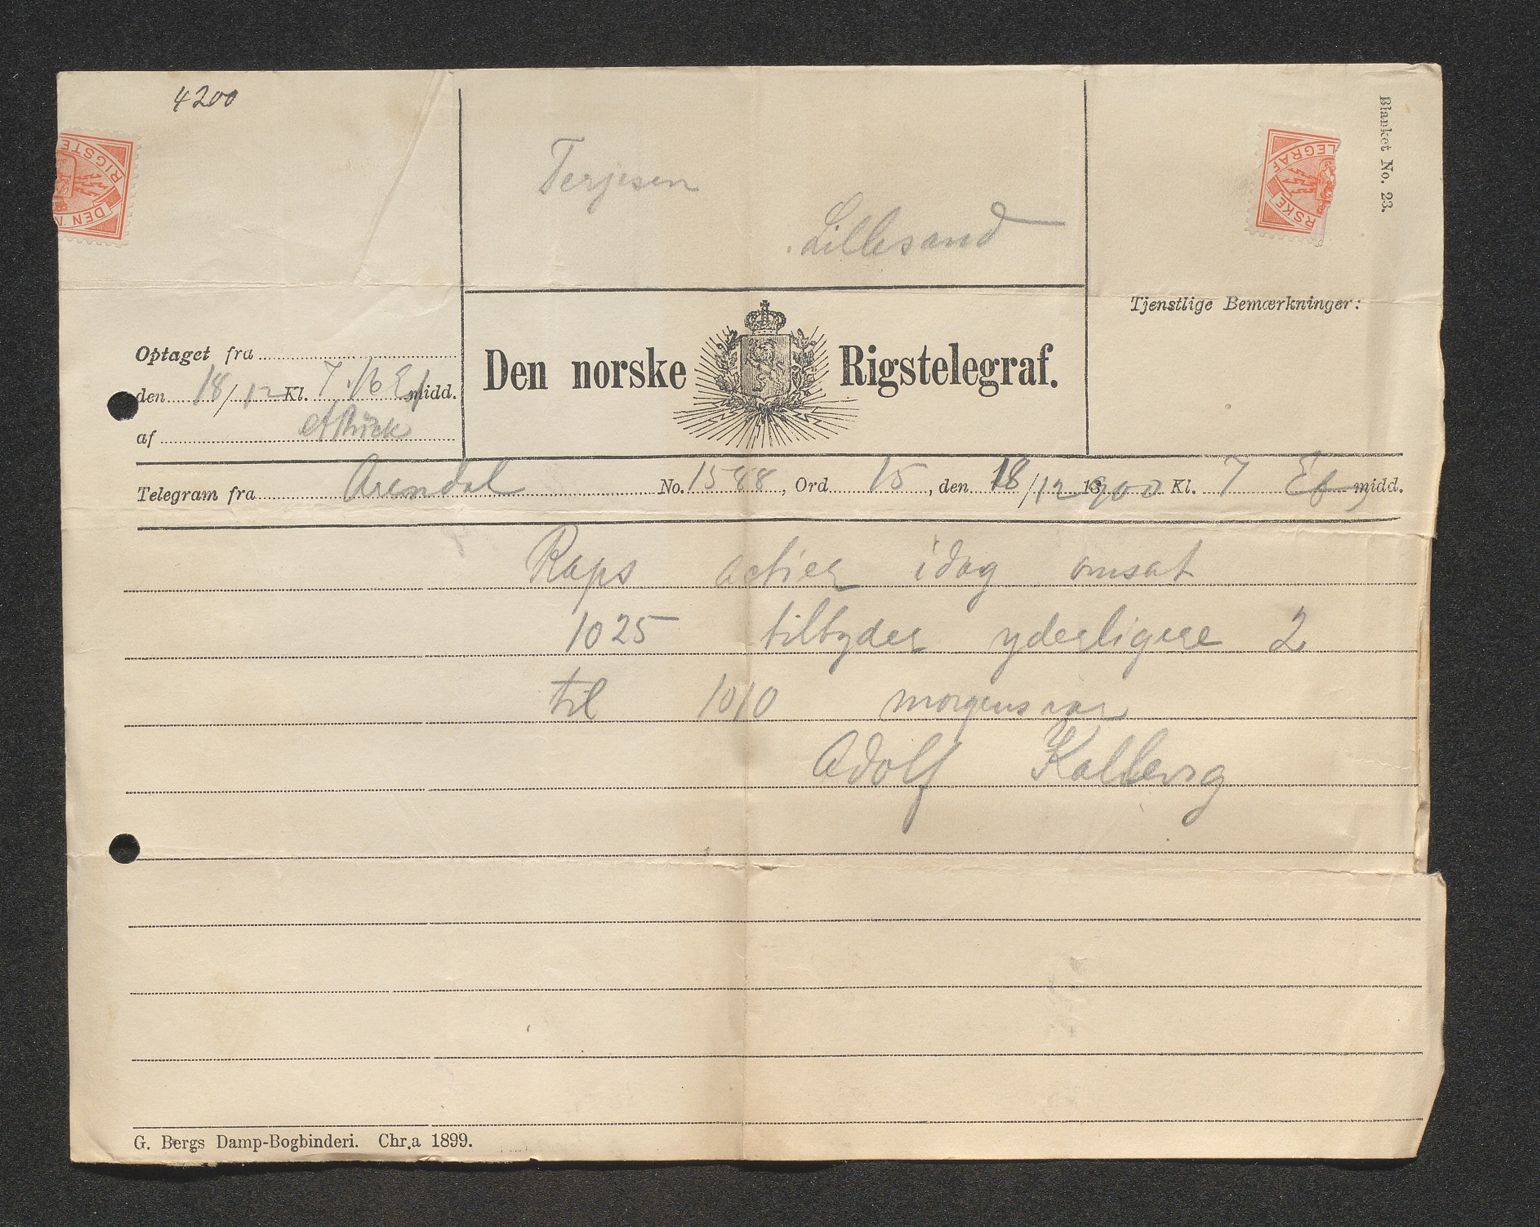 4200
Terjesen
Lillesand
Blanket No. 23.
RIGSTE
DEN
LEGRAF
RSKE
Tjenstlige Bemærkninger:
Optaget fra
den 18/12 Kl. 7.16 Ef midd.
af
Den norske Rigstelegraf.
Telegram fra Arendal No. 1588, Ord 15, den 18/12 1900 Kl. 7 Ef midd.
Raps actier idag omsat
1025 tilbyder yderligere 2
til 1010 morgensvar
Adolf Kallevig
G. Bergs Damp-Bogbinderi. Chr.a 1899.